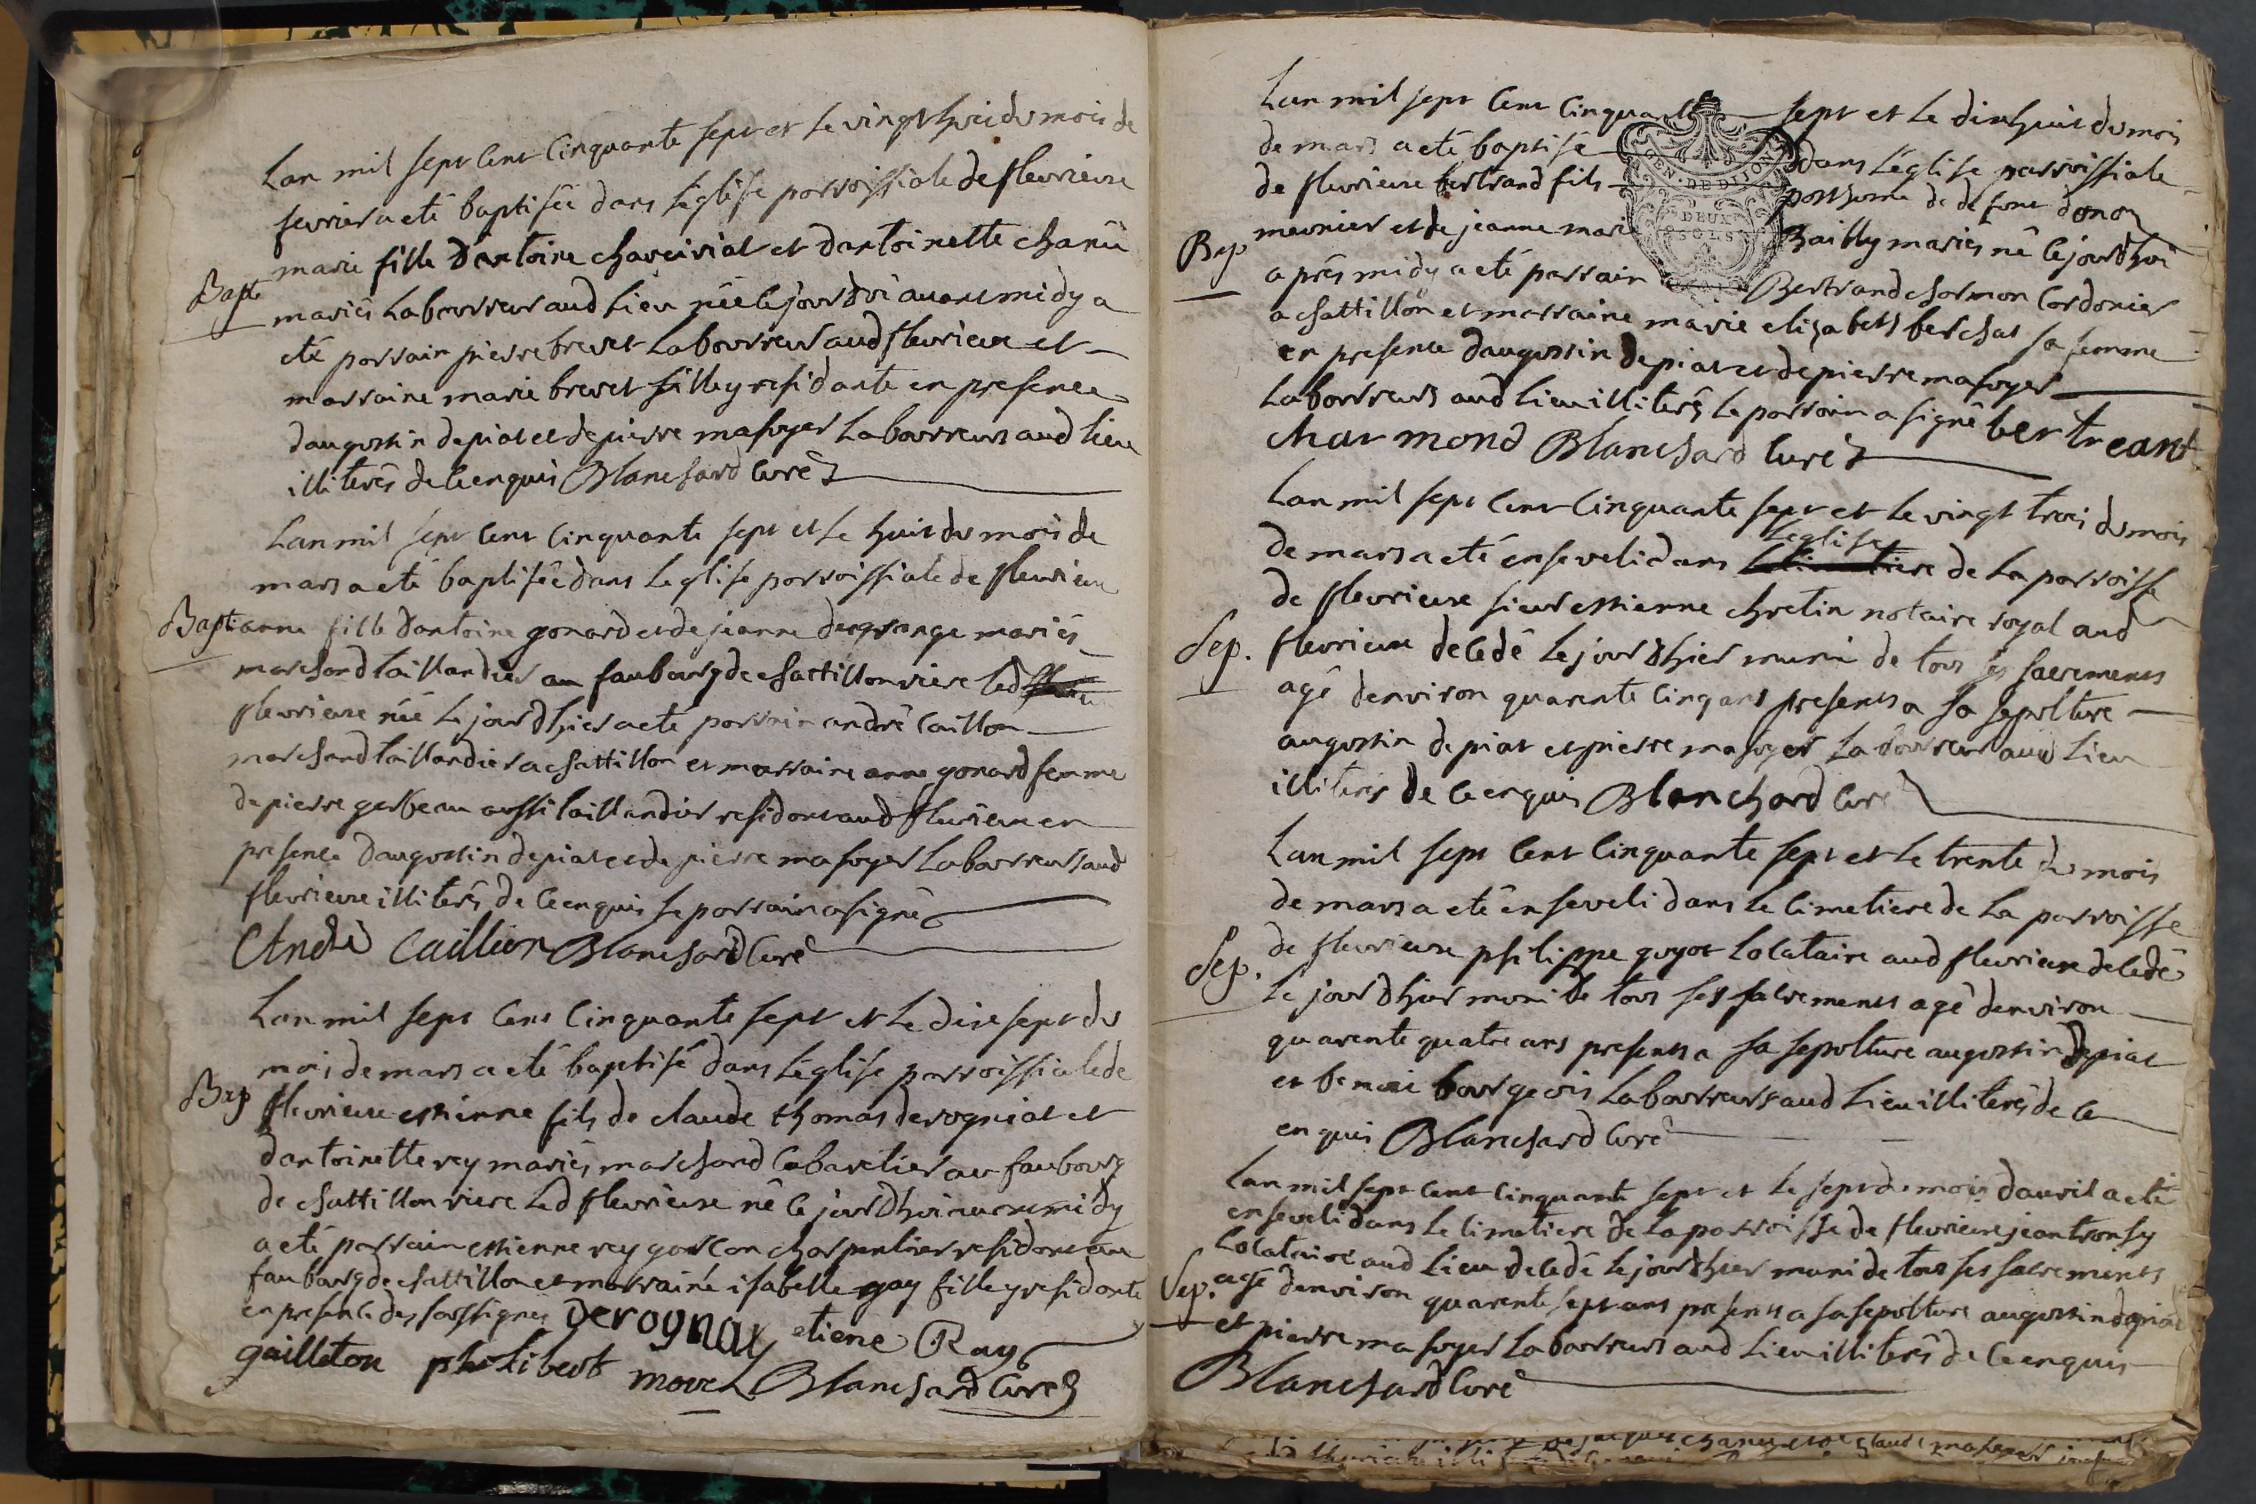 Lan mil sept cent cinquante sept et le vingt huit du mois de
fevrier a eté baptisée dans leglise parroissiale de fleurieux
marie fille dantoine charvirial et dantoinette chanü
Bapt
mariés laboureur aud lieu née le jourdhÿ avant midy a
eté parrain pierre brevet laboureur aud fleurieux et
marraine marie brevet fille y residante en presence
daugustin depiat et de pierre masoyer laboureurs aud lieu
illiterés de ce enquis Blanchard curé
Lan mil sept cent cinquante sept et le huit du mois de
mars a eté baptisée dans leglise parroissiale de fleurieux
Bapt anne fille dantoine gonard et de jeanne desgrange mariés
marchand taillandier au faubourg de chattillon riere led
fleurieux née le jourdhier a eté parrain andré caillon
marchand taillandier a chattillon et marraine anne gonard femme
de pierre gerbeau aussi taillandier residant aud fleurieux en
presence daugustin depiat et de pierre masoyer laboureurs aud
fleurieux illiterés de ce enquis le parrain a signé
André Caillion Blanchard Curé
Lan mil sept cent cinquante sept et le dixsept du
moi de mars a eté baptisé dans leglise parroissiale de
Bap fleurieux estienne fils de claude thomas derogniat et
dantoinette rey mariés marchand cabaretier au faubourg
de chattillon riere led fleurieux né le jourdhui avant midy
a eté parrain estienne rey garcon charpentier residant au
faubourg de chattillon et marraine isabelle gay fille y residante
en presence des soussignés Derognay etiene Ray
gailleton philibert morel Blanchard Curé
Lan mil sept cent cinquante sept et le dixhuit du moi
de mars a eté baptisé dans leglise parroissiale
GEN. DE DIJON
DEUX
SOLS
de fleurieux bertrand fils posthume de defunt
Bap
meunier et de jeanne marie Bailly mariés né le jourdhÿ
apres midy a eté parrain Bertrand charmon cordonier
a chattillon et marraine marie elizabeth berchat sa femme
en presence daugustin depiat et de pierre masoyer
laboureurs aud lieu illiterés le parrain a signé bertreant
charmond Blanchard curé
Lan mil sept cent cinquante sept et le vingt trois du mois
leglise
de mars a eté enseveli dans de la parroisse
de fleurieux sieur estienne chretin notaire royal aud
Sep. fleurieux decedé le jourdhier muni de tous ses sacrements
agé denviron quarente cinq ans presents a sa sepolture
augustin depiat et pierre masoyer laboureurs aud lieu
illiterés de ce enquis Blanchard Curé
Lan mil sept cent cinquante sept et le trente du mois
de mars a eté enseveli dans le cimetiere de la parroisse
Sep. de fleurieux philippe guyot locataire aud fleurieux decedé
le jourdhier muni de tous ses sacrements agé denviron
quarente quatre ans presents a sa sepolture augustin depiat
et benoi bourgeois laboureurs aud lieu illiterés de ce
enquis Blanchard Curé
Lan mil sept cent cinquante sept et le sept du mois davril a eté
enseveli dans le cimetiere de la parroisse de fleurieux jean tronsy
locataire aud lieu decedé le jourdhier muni de tous ses sacrements
Sep. agé denviron quarente sept ans presents a sa sepolture augustin depiat
et pierre masoyer laboureurs aud lieu illiterés de ce enquis
Blanchard Curé